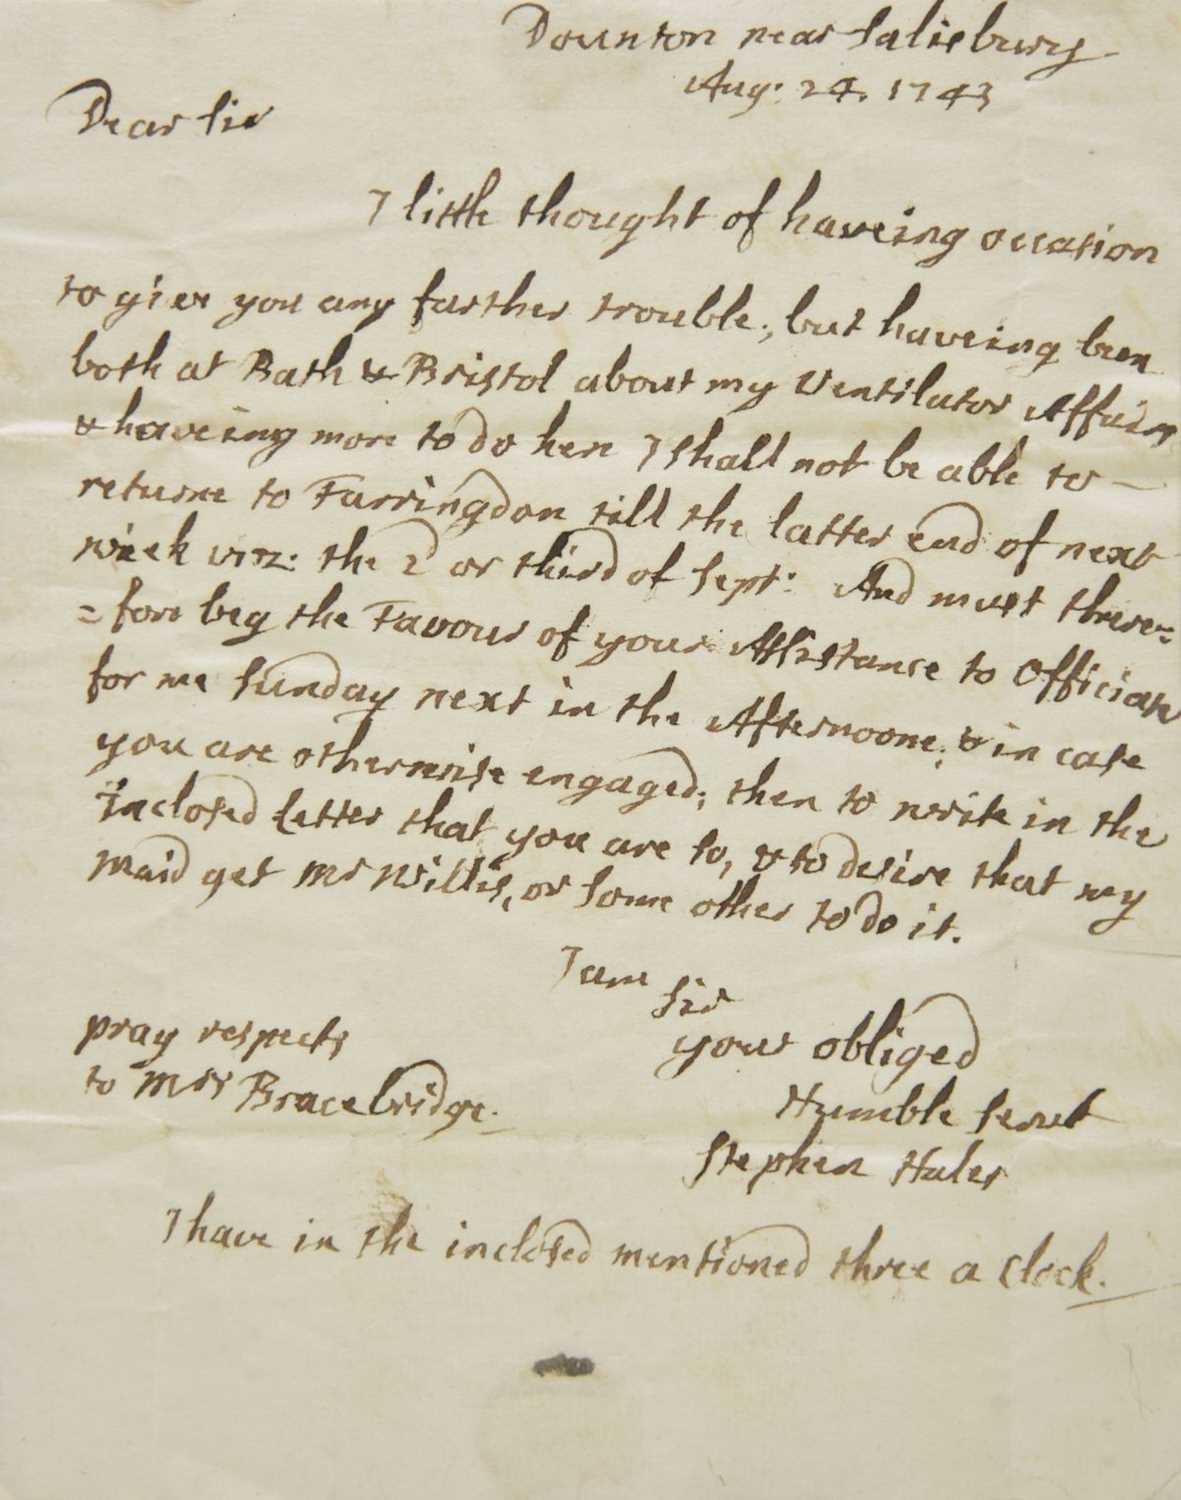 Dounton near Salisbury
Aug: 24. 1743
Dear Sir
I little thought of haveing occasion
to give you any farther trouble; but haveing been
both at Bath & Bristol about my Ventilator Affairs,
& haveing more to do here I shall not be able to
returne to Farringdon till the latter end of next
week viz: the 2d or third of Sept: And must there=
=fore beg the Favour of your Assistance to Officiate
for me Sunday next in the Afternoone; & in case
you are otherwise engaged; then to write in the
inclosed Letter that you are so, & to desire that my
maid get Mr Willis, or some other to do it.
I am
Sir
your obliged
Humble Servt
Stephen Hales
pray respects
to Mrs Bracebridge.
I have in the inclosed mentioned three a clock.